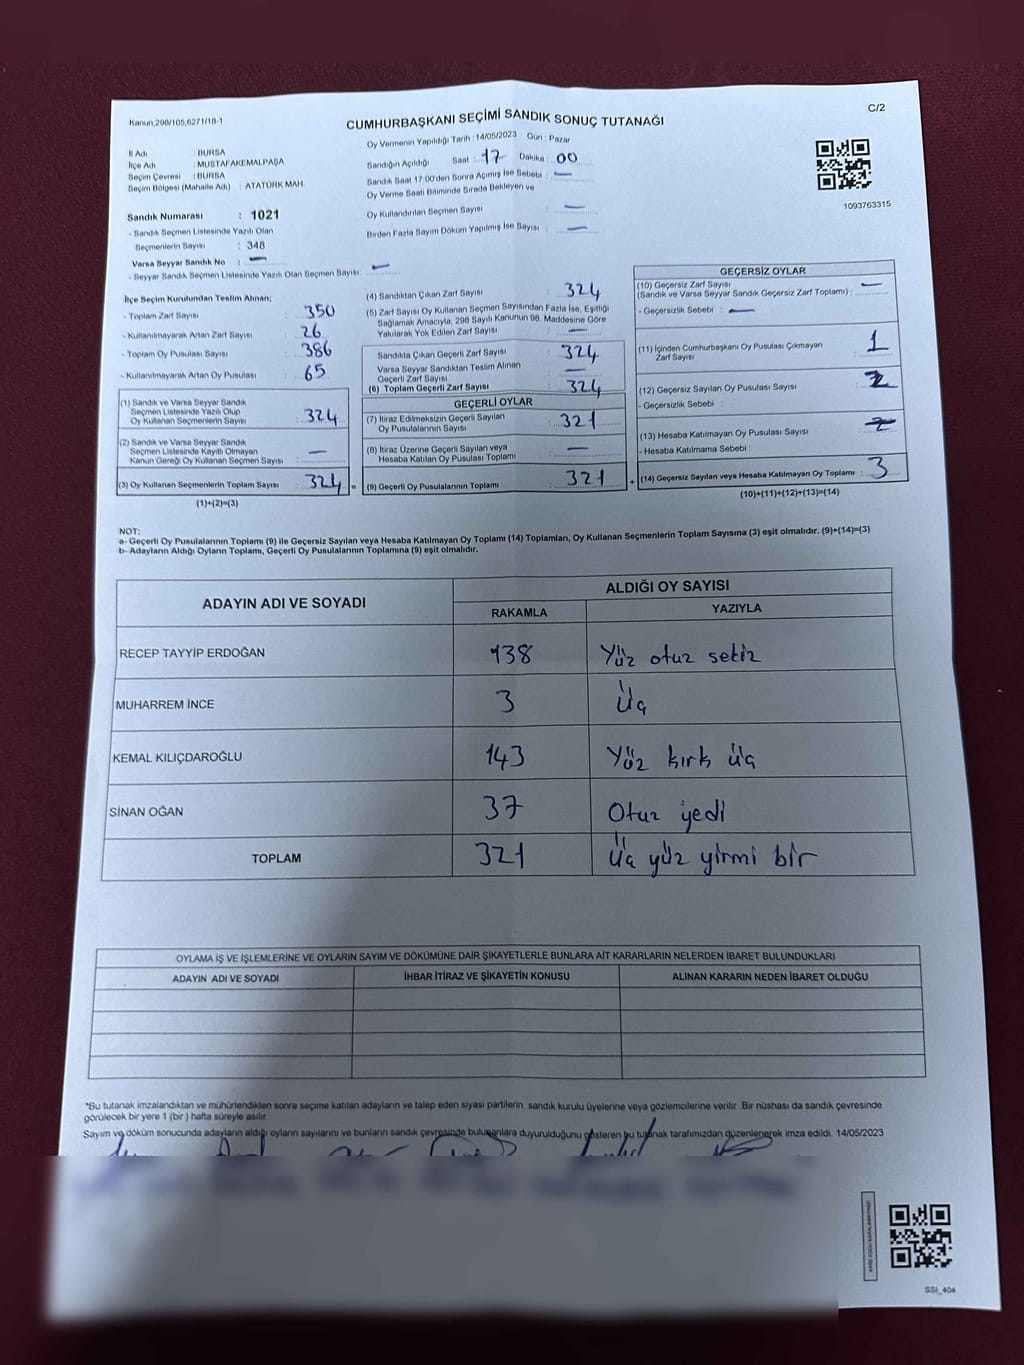 Kanun,298/105,6271/18-1
C/2
CUMHURBAŞKANI SEÇİMİ SANDIK SONUÇ TUTANAĞI
İl Adı : BURSA
İlçe Adı : MUSTAFAKEMALPAŞA
Seçim Çevresi : BURSA
Seçim Bölgesi (Mahalle Adı) : ATATÜRK MAH.
Oy Vermenin Yapıldığı Tarih : 14/05/2023 Gün : Pazar
Sandığın Açıldığı Saat : 17 Dakika : 00
Sandık Saat 17.00'den Sonra Açımış İse Sebebi : —
Oy Verme Saati Bitiminde Sırada Bekleyen ve
Oy Kullandırılan Seçmen Sayısı : —
Birden Fazla Sayım Döküm Yapılmış İse Sayısı : —
1093763315
Sandık Numarası : 1021
- Sandık Seçmen Listesinde Yazılı Olan
Seçmenlerin Sayısı : 348
Varsa Seyyar Sandık No : —
- Seyyar Sandık Seçmen Listesinde Yazılı Olan Seçmen Sayısı: —
İlçe Seçim Kurulundan Teslim Alınan;
- Toplam Zarf Sayısı : 350
- Kullanılmayarak Artan Zarf Sayısı : 26
- Toplam Oy Pusulası Sayısı : 386
- Kullanılmayarak Artan Oy Pusulası : 65
(1) Sandık ve Varsa Seyyar Sandık
Seçmen Listesinde Yazılı Olup
Oy Kullanan Seçmenlerin Sayısı : 324
(2) Sandık ve Varsa Seyyar Sandık
Seçmen Listesinde Kayıtlı Olmayan
Kanun Gereği Oy Kullanan Seçmen Sayısı : —
(3) Oy Kullanan Seçmenlerin Toplam Sayısı : 324 =
(1)+(2)=(3)
(4) Sandıktan Çıkan Zarf Sayısı : 324
(5) Zarf Sayısı Oy Kullanan Seçmen Sayısından Fazla İse, Eşitliği
Sağlamak Amacıyla, 298 Sayılı Kanunun 98. Maddesine Göre
Yakılarak Yok Edilen Zarf Sayısı : —
Sandıkta Çıkan Geçerli Zarf Sayısı : 324
Varsa Seyyar Sandıktan Teslim Alınan
Geçerli Zarf Sayısı : —
(6) Toplam Geçerli Zarf Sayısı : 324
GEÇERLİ OYLAR
(7) İtiraz Edilmeksizin Geçerli Sayılan
Oy Pusulalarının Sayısı : 321
(8) İtiraz Üzerine Geçerli Sayılan veya
Hesaba Katılan Oy Pusulası Toplamı : —
(9) Geçerli Oy Pusulalarının Toplamı : 321 +
GEÇERSİZ OYLAR
(10) Geçersiz Zarf Sayısı
(Sandık ve Varsa Seyyar Sandık Geçersiz Zarf Toplamı) : —
- Geçersizlik Sebebi : —
(11) İçinden Cumhurbaşkanı Oy Pusulası Çıkmayan
Zarf Sayısı : 1
(12) Geçersiz Sayılan Oy Pusulası Sayısı : 2
- Geçersizlik Sebebi :
(13) Hesaba Katılmayan Oy Pusulası Sayısı :
- Hesaba Katılmama Sebebi :
(14) Geçersiz Sayılan veya Hesaba Katılmayan Oy Toplamı : 3
(10)+(11)+(12)+(13)=(14)
NOT:
a- Geçerli Oy Pusulalarının Toplamı (9) ile Geçersiz Sayılan veya Hesaba Katılmayan Oy Toplamı (14) Toplamları, Oy Kullanan Seçmenlerin Toplam Sayısına (3) eşit olmalıdır. (9)+(14)=(3)
b- Adayların Aldığı Oyların Toplamı, Geçerli Oy Pusulalarının Toplamına (9) eşit olmalıdır.
ADAYIN ADI VE SOYADI
ALDIĞI OY SAYISI
RAKAMLA YAZIYLA
RECEP TAYYİP ERDOĞAN 138 Yüz otuz sekiz
MUHARREM İNCE 3 Üç
KEMAL KILIÇDAROĞLU 143 Yüz kırk üç
SİNAN OĞAN 37 Otuz yedi
TOPLAM 321 Üç yüz yirmi bir
OYLAMA İŞ VE İŞLEMLERİNE VE OYLARIN SAYIM VE DÖKÜMÜNE DAİR ŞİKAYETLERLE BUNLARA AİT KARARLARIN NELERDEN İBARET BULUNDUKLARI
ADAYIN ADI VE SOYADI İHBAR İTİRAZ VE ŞİKAYETİN KONUSU ALINAN KARARIN NEDEN İBARET OLDUĞU
*Bu tutanak imzalandıktan ve mühürlendikten sonra seçime katılan adayların ve talep eden siyasi partilerin sandık kurulu üyelerine veya gözlemcilerine verilir. Bir nüshası da sandık çevresinde
görülecek bir yere 1 (bir) hafta süreyle asılır.
Sayım ve döküm sonucunda adayların aldığı oyların sayılarını ve bunların sandık çevresinde bulunanlara duyurulduğunu gösteren bu tutanak tarafımızdan düzenlenerek imza edildi. 14/05/2023
SSI_404